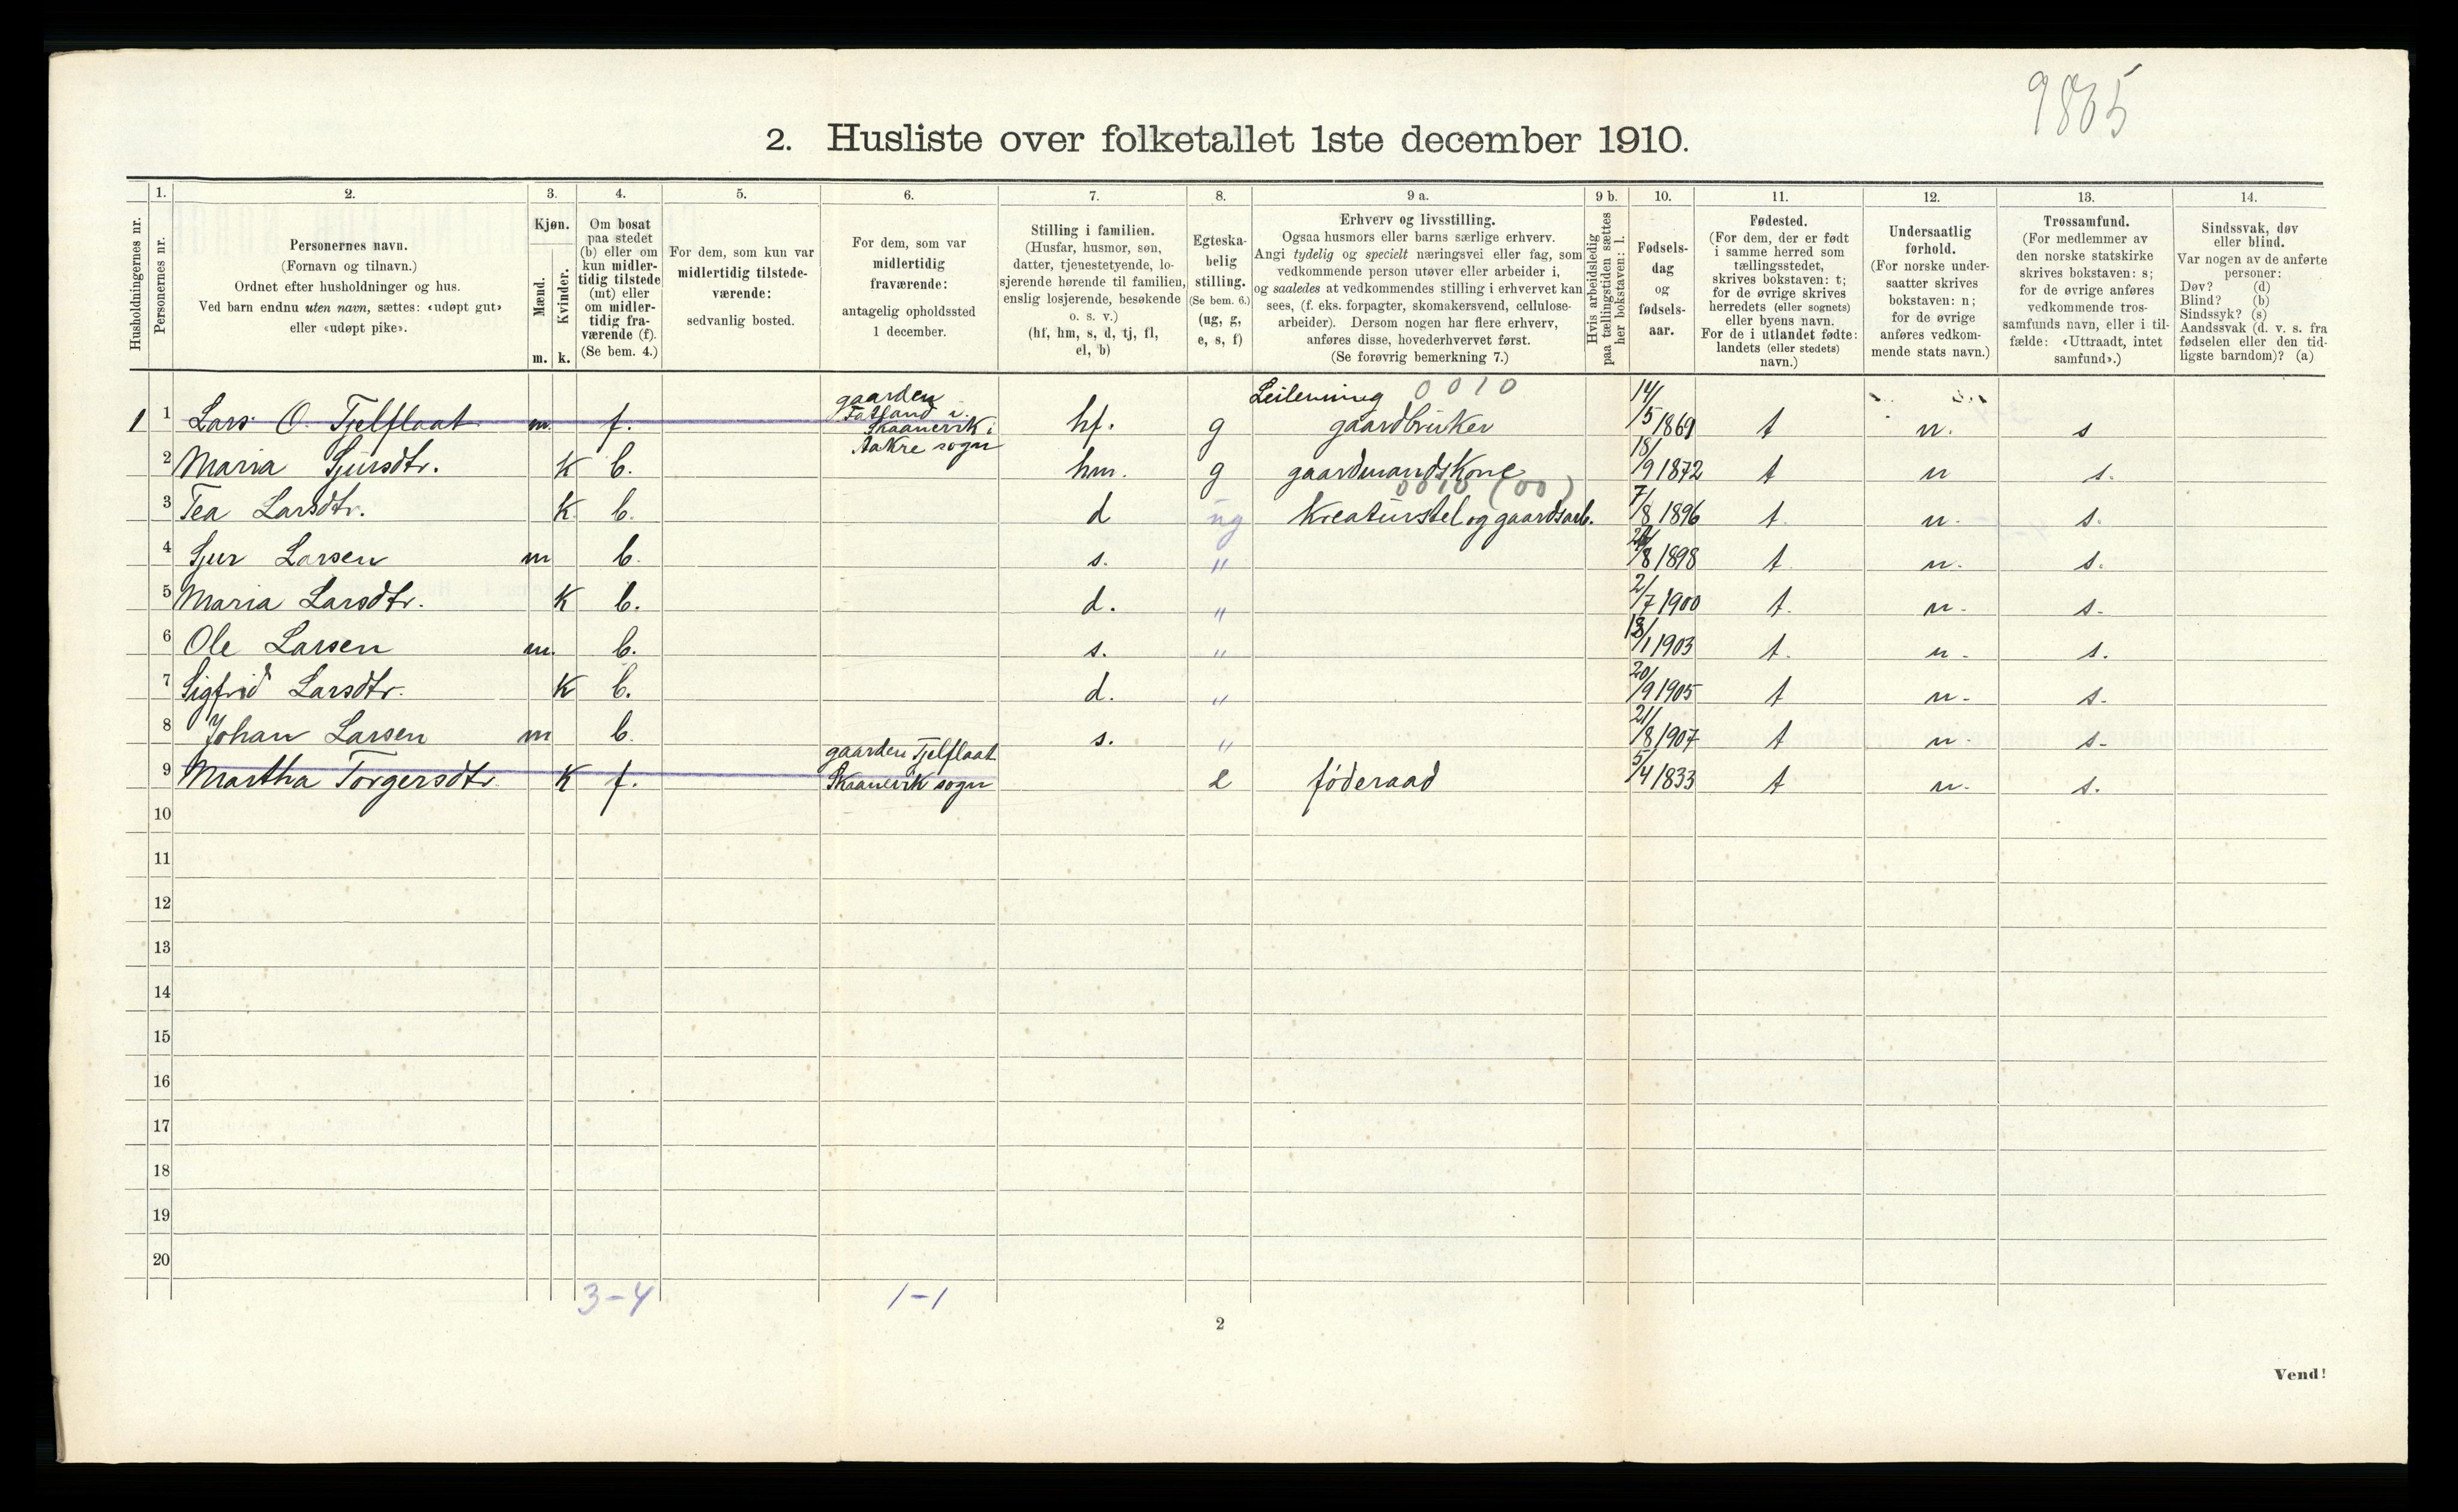 9865
2. Husliste over folketallet 1ste december 1910.
Husholdningernes nr.
1.
Personernes nr.
2.
Personernes navn.
(Fornavn og tilnavn.)
Ordnet efter husholdninger og hus.
Ved barn endnu uten navn, sættes: «udøpt gut»
eller «udøpt pike».
3.
Kjøn.
Mænd.
Kvinder.
m. k.
4.
Om bosat
paa stedet
(b) eller om
kun midler-
tidig tilstede
(mt) eller
om midler-
tidig fra-
værende (f).
(Se bem. 4.)
5.
For dem, som kun var
midlertidig tilstede-
værende:
sedvanlig bosted.
6.
For dem, som var
midlertidig
fraværende:
antagelig opholdssted
1 december.
7.
Stilling i familien.
(Husfar, husmor, søn,
datter, tjenestetyende, lo-
sjerende hørende til familien,
enslig losjerende, besøkende
o. s. v.)
(hf, hm, s, d, tj, fl,
el, b)
8.
Egteska-
belig
stilling.
(Se bem. 6.)
(ug, g,
e, s, f)
9 a.
Erhverv og livsstilling.
Ogsaa husmors eller barns særlige erhverv.
Angi tydelig og specielt næringsvei eller fag, som
vedkommende person utøver eller arbeider i,
og saaledes at vedkommendes stilling i erhvervet kan
sees, (f. eks. forpagter, skomakersvend, cellulose-
arbeider). Dersom nogen har flere erhverv,
anføres disse, hovederhvervet først.
(Se forøvrig bemerkning 7.)
9 b.
Hvis arbeidsledig
paa tællingstiden sættes
her bokstaven: l.
10.
Fødsels-
dag
og
fødsels-
aar.
11.
Fødested.
(For dem, der er født
i samme herred som
tællingsstedet,
skrives bokstaven: t;
for de øvrige skrives
herredets (eller sognets)
eller byens navn.
For de i utlandet fødte:
landets (eller stedets)
navn.)
12.
Undersaatlig
forhold.
(For norske under-
saatter skrives
bokstaven: n;
for de øvrige
anføres vedkom-
mende stats navn.)
13.
Trossamfund.
(For medlemmer av
den norske statskirke
skrives bokstaven: s;
for de øvrige anføres
vedkommende tros-
samfunds navn, eller i til-
fælde: «Uttraadt, intet
samfund».)
14.
Sindssvak, døv
eller blind.
Var nogen av de anførte
personer:
Døv? (d)
Blind? (b)
Sindssyk? (s)
Aandssvak (d. v. s. fra
fødselen eller den tid-
ligste barndom)? (a)
gaarden Leilending 0010
1 1 Lars O. Tjelflaat m. f. i Skaanevik i hf. g gaardbruker 14/5 1869 t n. s
Aakre sogn
2 Maria Sjursdtr. K b. hm. g gaardmandskone 18/9 1872 t n s.
0010 (00)
3 Tea Larsdtr. K. b. d ug Kreaturstel og gaardsarb. 7/8 1896 t. n. s.
4 Sjur Larsen m b. s. " /8 1898 t. n. s.
5 Maria Larsdtr. K b. d. " 2/7 1900 t. n. s.
6 Ole Larsen m. b. s. " /1 1903 t. n. s.
7 Sigfrid Larsdtr. K b. d. " 20/9 1905 t n. s.
8 Johan Larsen m b. s. " 21/8 1907 t n. s.
gaarden Tjelflaat
9 Martha Torgersdtr K f. Skaanevik sogn e føderaad 5/4 1833 t n. s.
10
11
12
13
14
15
16
17
18
19
20
3-4 1-1
2
Vend!